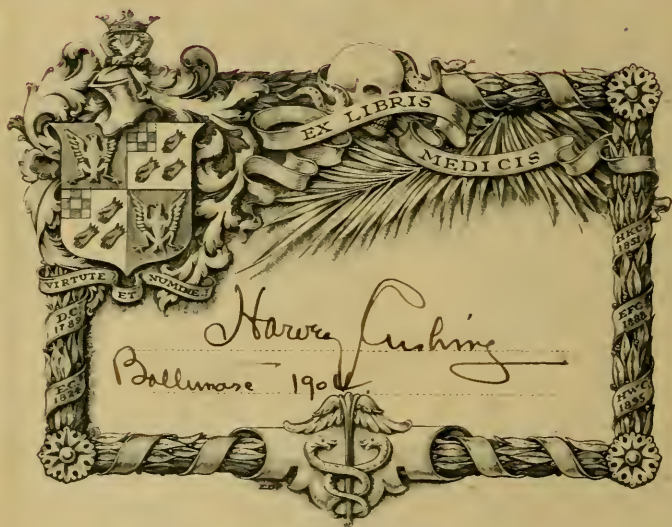 EX LIBRIS
MEDICIS
VIRTUTE ET NUMINE
D.C.
E.C.
HKC
1851
EFC
1888
HWC
1895
Harvey Cushing
Baltimore